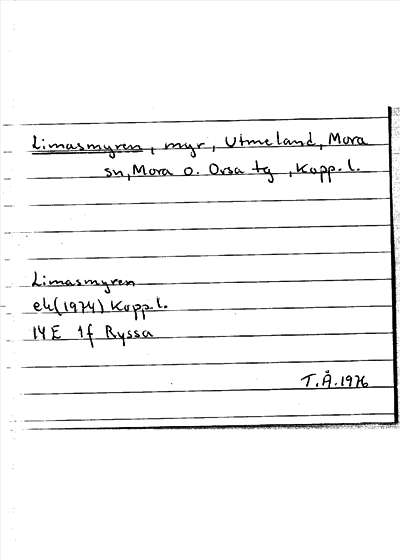 Limasmyren, myr, Utmeland, Mora
sn, Mora o. Orsa tg, Kopp.l.
Limasmyren
ek(1974) Kopp.l.
14E 1f Ryssa
T.Å.1976